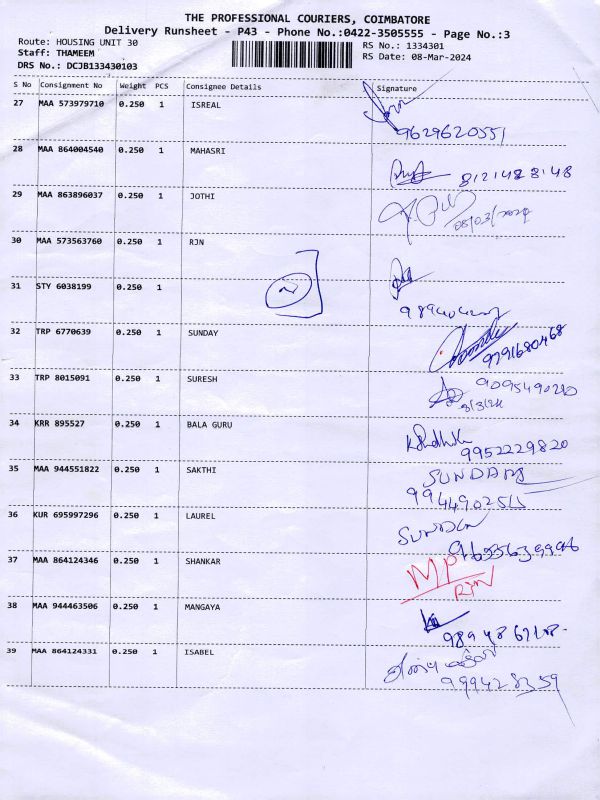 THE PROFESSIONAL COURIERS, COIMBATORE
Delivery Runsheet - P43 - Phone No.:0422-3505555 - Page No.:3
Route: HOUSING UNIT 30
RS No.: 1334301
Staff: THAMEEM
RS Date: 08-Mar-2024
DRS No.: DCJB133430103
S No Consignment No Weight PCS Consignee Details Signature
27 MAA 573979710 0.250 1 ISREAL
9629620551
28 MAA 864004540 0.250 1 MAHASRI
8121488148
29 MAA 863896037 0.250 1 JOTHI
08/03/2024
30 MAA 573563760 0.250 1 RJN
31 STY 6038199 0.250 1
32 TRP 6770639 0.250 1 SUNDAY
9791680468
33 TRP 8015091 0.250 1 SURESH
9095490210
8/3/24
34 KRR 895527 0.250 1 BALA GURU
9952229820
35 MAA 944551822 0.250 1 SAKTHI
SUNDAR
9944902515
36 KUR 695997296 0.250 1 LAUREL
37 MAA 864124346 0.250 1 SHANKAR
MP
RJN
38 MAA 944463506 0.250 1 MANGAYA
39 MAA 864124331 0.250 1 ISABEL